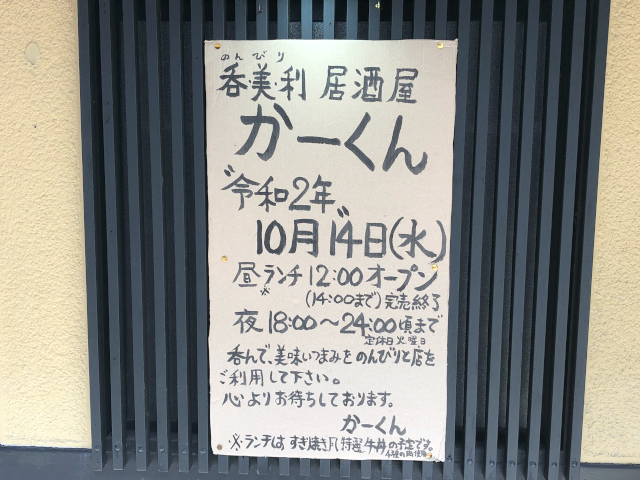 のんびり
呑・美・利 居酒屋
かーくん
令和2年
10月14日(水)
昼ランチ12:00オープン
※(14:00まで)完売終了
夜18:00～24:00頃まで
定休日火曜日
呑んで、美味いつまみをのんびりと店を
ご利用して下さい。
心よりお待ちしております。
かーくん
※ランチは、すき焼き風特選牛丼の予定です。